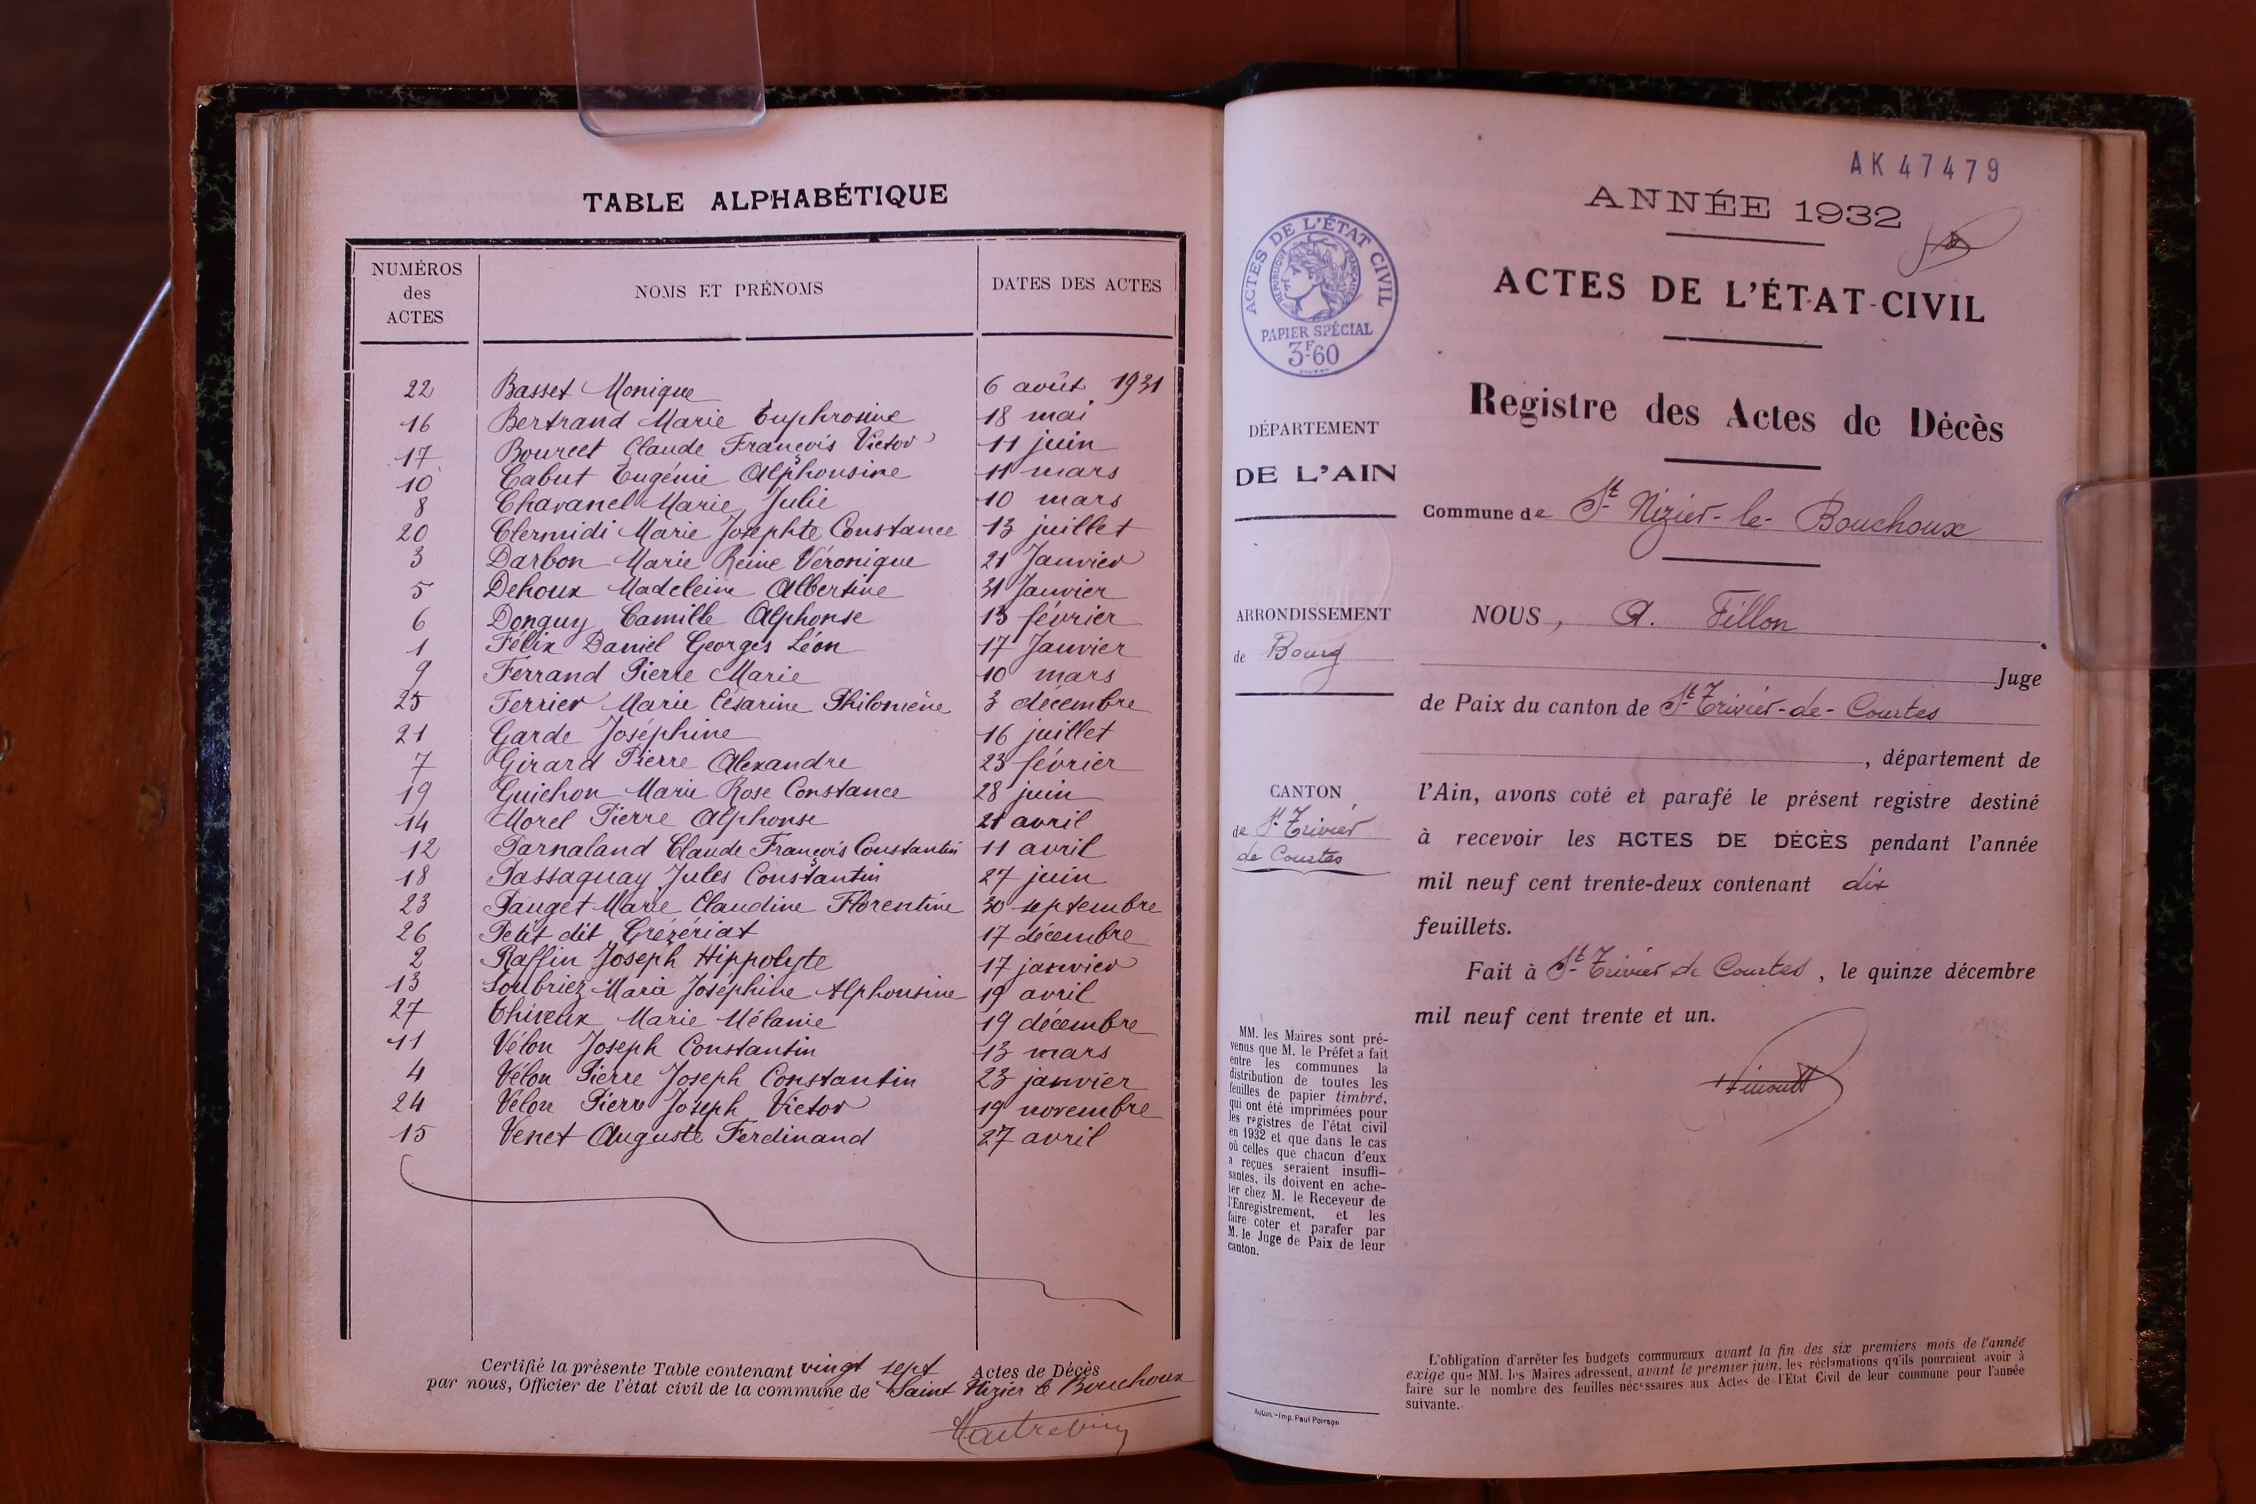 TABLE ALPHABÉTIQUE
NUMÉROS
des
ACTES
NOMS ET PRÉNOMS
DATES DES ACTES
22 Basset Monique 6 août 1931
16 Bertrand Marie Euphrosine 18 mai
17 Bourcet Claude François Victor 11 juin
10 Cabut Eugénie Alphonsine 11 mars
8 Chavanel Marie Julie 10 mars
20 Clermidi Marie Josephte Constance 13 juillet
3 Darbon Marie Reine Véronique 21 Janvier
5 Dehoux Madeleine Albertine 31 Janvier
6 Donguy Camille Alphonse 13 février
1 Félix Daniel Georges Léon 17 Janvier
9 Ferrand Pierre Marie 10 mars
25 Ferrier Marie Césarine Philomène 3 décembre
21 Garde Joséphine 16 juillet
7 Girard Pierre Alexandre 23 février
19 Guichon Marie Rose Constance 28 juin
14 Morel Pierre Alphonse 21 avril
12 Parnaland Claude François Constantin 11 avril
18 Passaquay Jules Constantin 27 juin
23 Pauget Marie Claudine Florentine 30 septembre
26 Petit dit Crézériat 17 décembre
2 Raffin Joseph Hippolyte 17 janvier
13 Soubriez Maria Joséphine Alphonsine 19 avril
27 Thiveux Marie Mélanie 19 décembre
11 Vélon Joseph Constantin 13 mars
4 Vélon Pierre Joseph Constantin 23 janvier
24 Vélon Pierre Joseph Victor 19 novembre
15 Venet Auguste Ferdinand 27 avril
Certifié la présente Table contenant vingt sept Actes de Décès
par nous, Officier de l'état civil de la commune de Saint Nizier le Bouchoux
AK 47479
ANNÉE 1932
ACTES DE L'ÉTAT CIVIL
RÉPUBLIQUE FRANÇAISE
PAPIER SPÉCIAL
3F60
ACTES DE L'ÉTAT-CIVIL
Registre des Actes de Décès
DÉPARTEMENT
DE L'AIN
Commune de St Nizier-le-Bouchoux
ARRONDISSEMENT
de Bourg
NOUS, A. Fillon
Juge
de Paix du canton de St Trivier-de-Courtes
, département de
CANTON
de St Trivier
de Courtes
l'Ain, avons coté et parafé le présent registre destiné
à recevoir les ACTES DE DÉCÈS pendant l'année
mil neuf cent trente-deux contenant dix
feuillets.
Fait à St Trivier de Courtes, le quinze décembre
mil neuf cent trente et un.
MM. les Maires sont pré-
venus que M. le Préfet a fait
entre les communes la
distribution de toutes les
feuilles de papier timbré,
qui ont été imprimées pour
les registres de l'état civil
en 1932 et que dans le cas
où celles que chacun d'eux
a reçues seraient insuffi-
santes, ils doivent en ache-
ter chez M. le Receveur de
l'Enregistrement, et les
faire coter et parafer par
M. le Juge de Paix de leur
canton.
Autun.-Imp. Paul Poirson
L'obligation d'arrêter les budgets communaux avant la fin des six premiers mois de l'année
exige que MM. les Maires adressent, avant le premier juin, les réclamations qu'ils pourraient avoir à
faire sur le nombre des feuilles nécessaires aux Actes de l'Etat Civil de leur commune pour l'année
suivante.